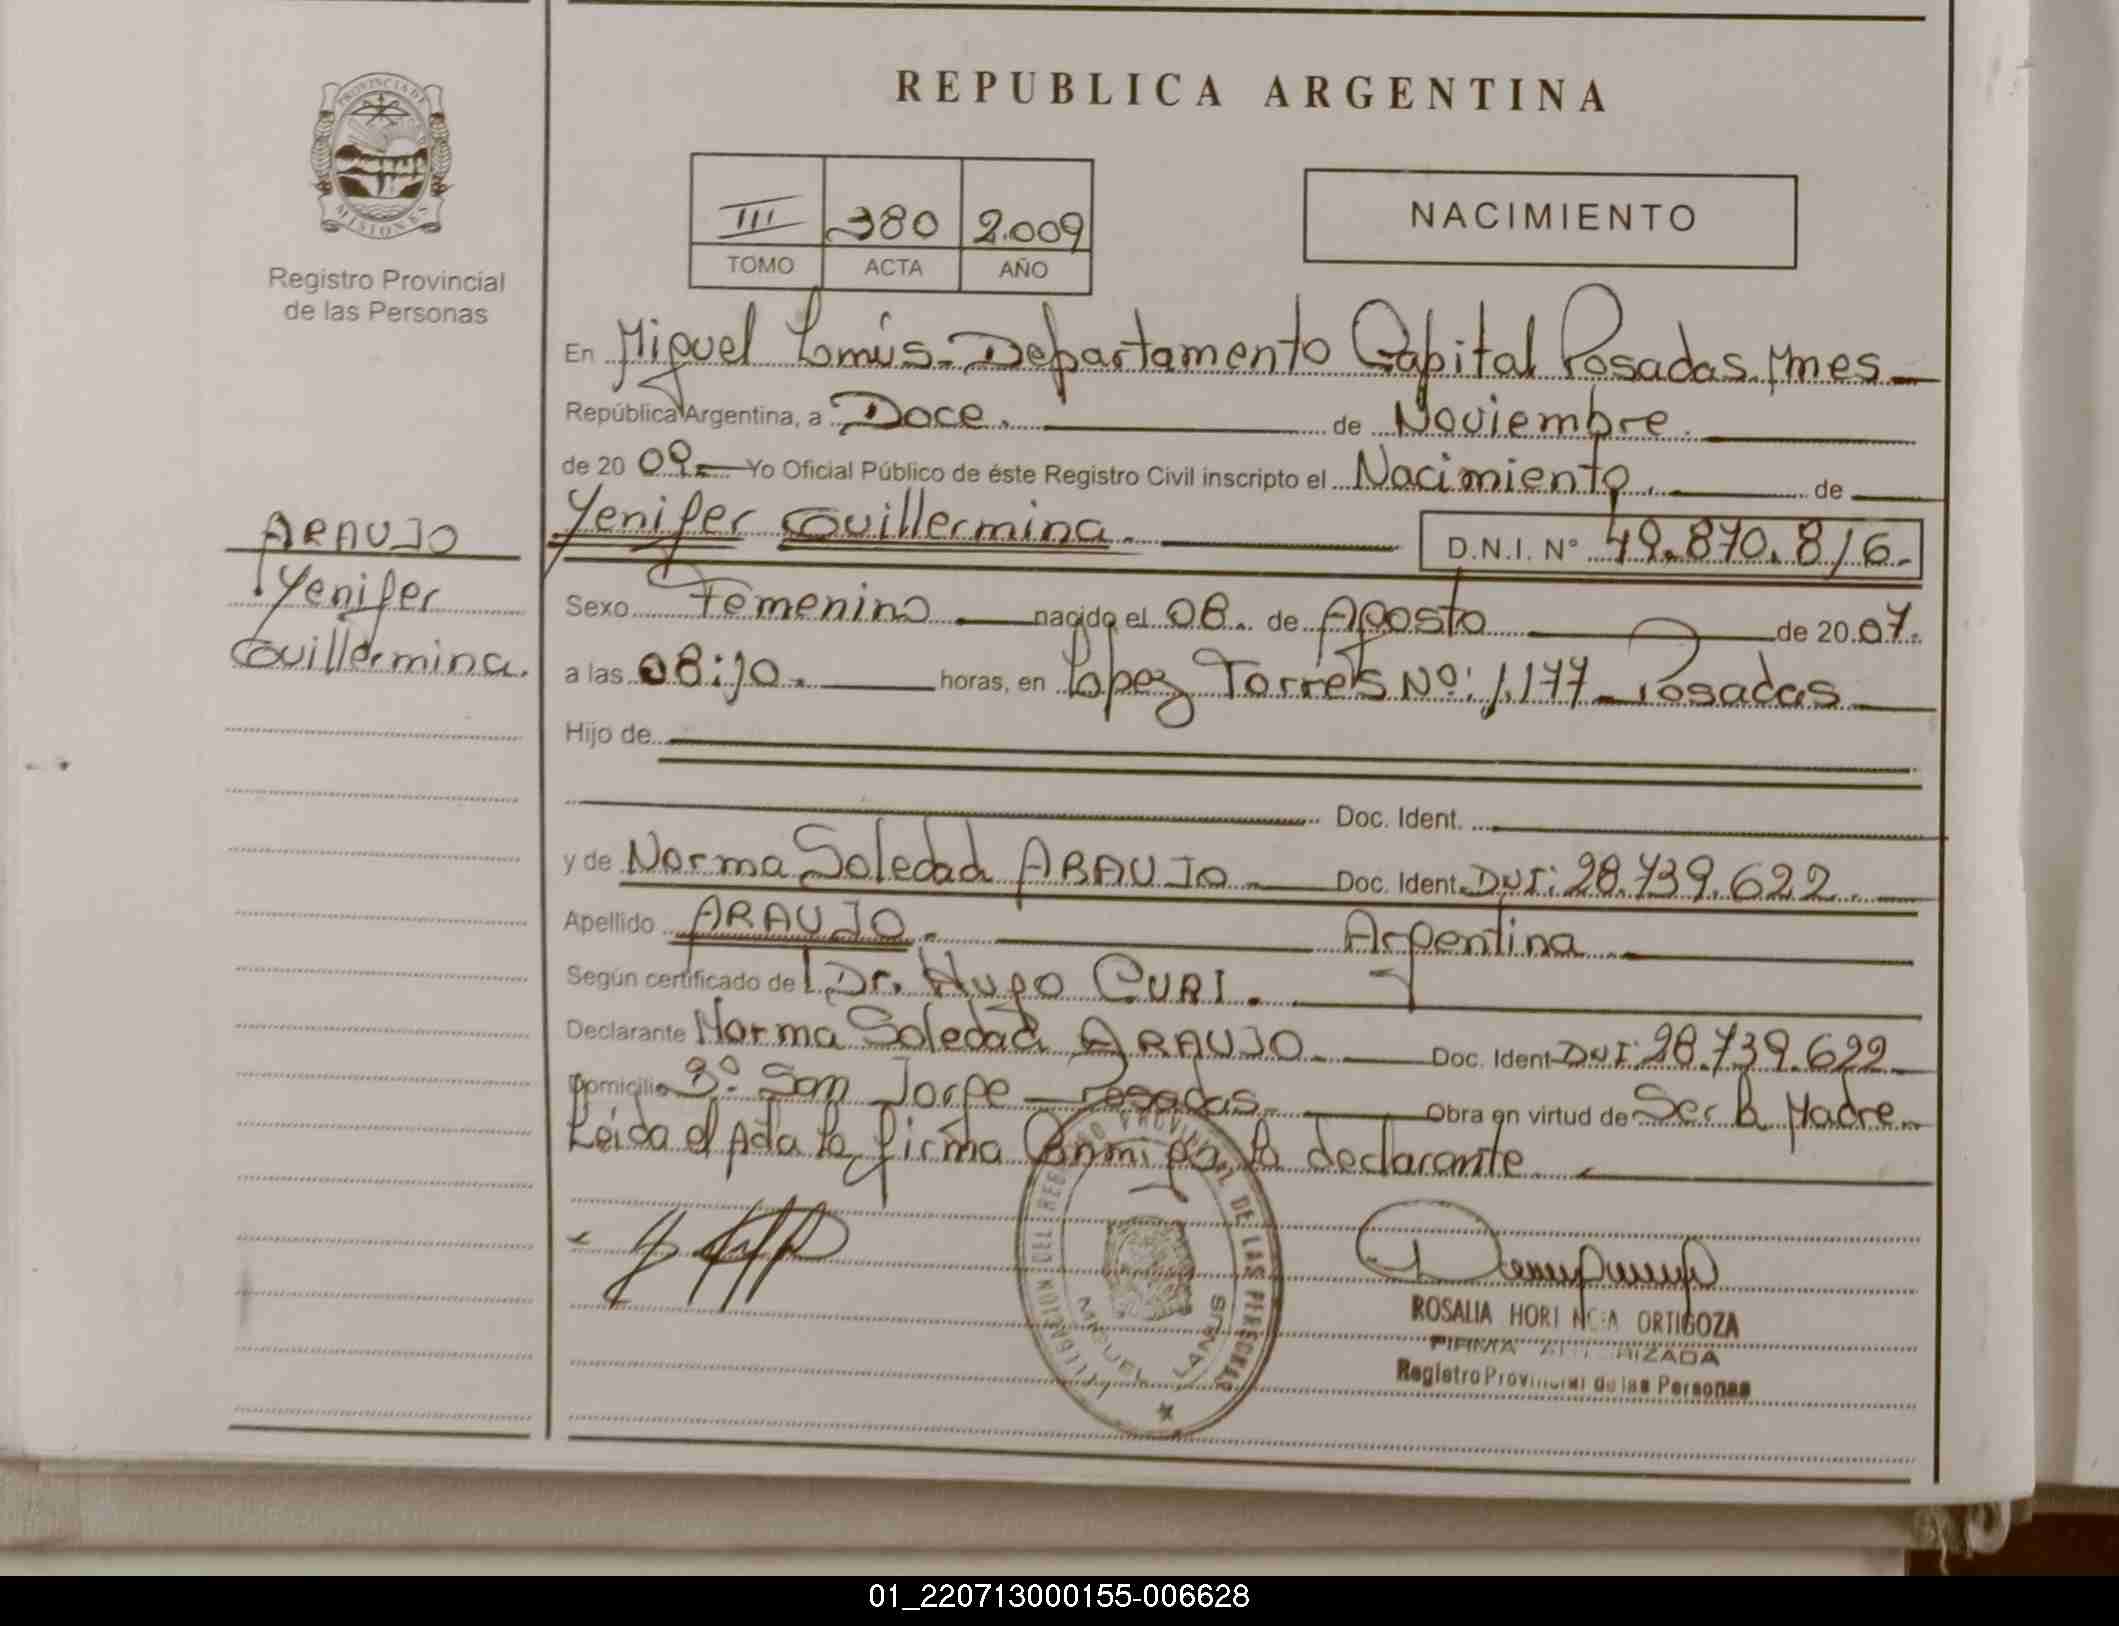 PROVINCIA DE
MISIONES
Registro Provincial
de las Personas
ARAUJO
Yenifer
Guillermina.
REPUBLICA ARGENTINA
III 380 2.009
TOMO ACTA AÑO
NACIMIENTO
En Miguel Lanús. Departamento Capital Posadas Mnes
República Argentina, a Doce. de Noviembre.
de 20 09. Yo Oficial Público de éste Registro Civil inscripto el Nacimiento. de
Yenifer Guillermina. D.N.I. Nº 49.870.816.
Sexo Femenino nacido el 08. de Agosto de 20.07.
a las 08:30. horas, en Lopez Torres Nº: 1.177 Posadas
Hijo de
Doc. Ident.
y de Norma Soledad ARAUJO Doc. Ident. DNI: 28.739.622.
Apellido ARAUJO. Argentina
Según certificado de Dr. Hugo CURI.
Declarante Norma Soledad ARAUJO. Doc. Ident DNI: 28.739.622
Domicilio San Jorge Posadas. Obra en virtud de Ser la Madre.
Leída el Acta la firma Conmigo la declarante
DELEGACION DEL REGISTRO PROVINCIAL DE LAS PERSONAS
MIGUEL LANUS
ROSALIA ORTIGOZA
FIRMA AUTORIZADA
Registro Provincial de las Personas
01_220713000155-006628